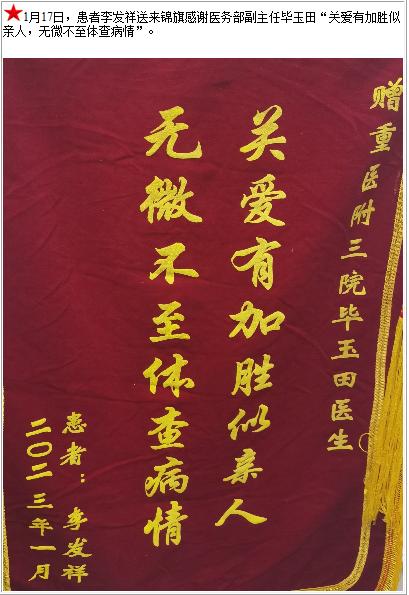 1月17日，患者李发祥送来锦旗感谢医务部副主任毕玉田“关爱有加胜似
亲人，无微不至体查病情”。
赠重医附三院毕玉田医生
关爱有加胜似亲人
无微不至体查病情
患者：李发祥
二〇二三年一月